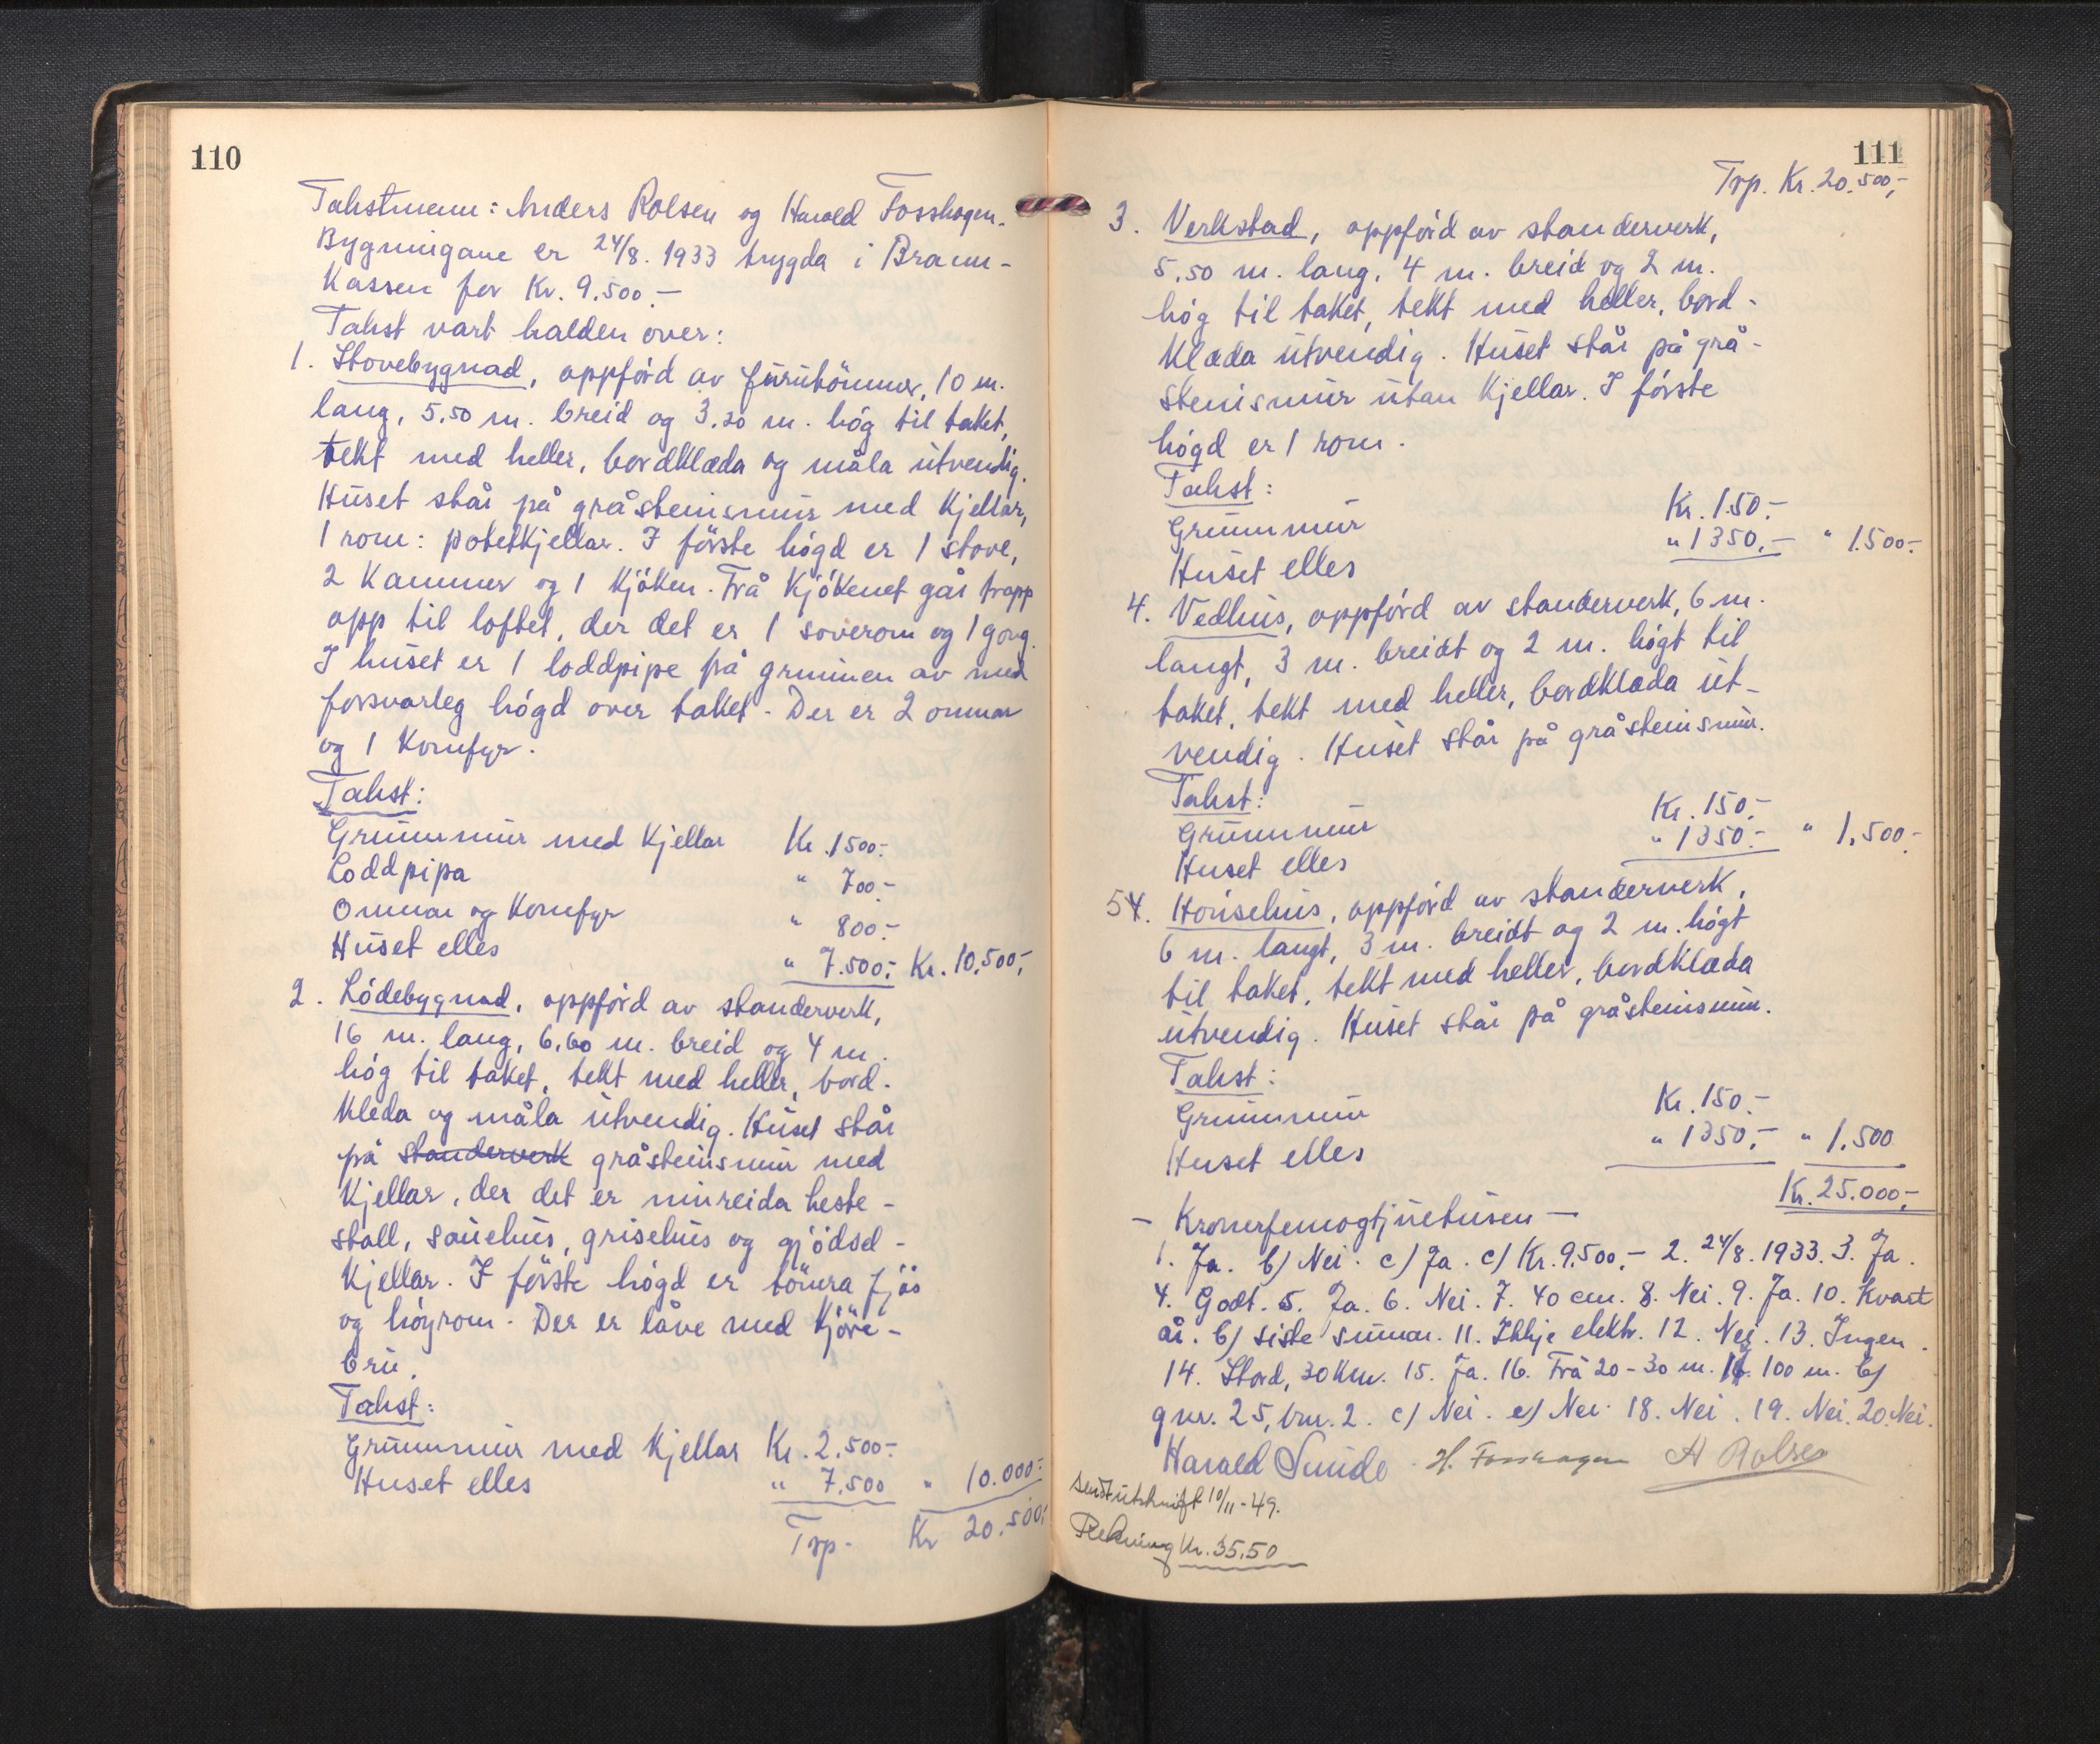 110
Takstmenn: Anders Rolsen og Harald Fosshagen.
Bygningane er 24/8. 1933 trygda i Brann-
Kassen for Kr. 9.500.-
Takst vart halden over:
1. Stovebygnad, oppförd av furutömmer, 10 m.
lang, 5.50 m. breid og 3.20 m. hög til taket,
tekt med heller, bordklæda og måla utvendig.
Huset står på gråsteinsmur med Kjellar,
1 rom: potetkjellar. I förste högd er 1 stove,
2 Kammer og 1 Kjöken. Frå Kjökenet går trapp
opp til loftet, der det er 1 soverom og 1 gong.
I huset er 1 loddpipe frå grunnen av med
forsvarleg högd over taket. Der er 2 omnar
og 1 Komfyr.
Takst:
Grunnmur med Kjellar Kr. 1500.-
Loddpipa " 700.-
Omnar og Komfyr " 800.-
Huset elles " 7.500.- Kr. 10.500,-
2. Lödebygnad, oppförd av standerverk,
16 m. lang, 6,60 m. breid og 4 m.
hög til taket, tekt med heller, bord-
kleda og måla utvendig. Huset står
på standerverk gråsteinsmur med
Kjellar, der det er innreida heste-
stall, sauehus, grisehus og gjödsel-
Kjellar. I förste högd er tömra fjös
og höyrom. Der er låve med Kjöre-
bru.
Takst:
Grunnmur med Kjellar Kr. 2.500.-
Huset elles " 7.500 " 10.000.-
Trp. Kr 20.500,-
111
Trp. Kr. 20.500,-
3. Verkstad, oppförd av standerverk,
5.50 m. lang, 4 m. breid og 2 m.
hög til taket, tekt med heller, bord-
Klæda utvendig. Huset står på grå-
steinsmur utan Kjellar. I förste
högd er 1 rom.
Takst:
Grunnmur Kr. 150.-
Huset elles " 1350.- " 1.500.-
4. Vedhus, oppförd av standerverk, 6 m.
langt, 3 m. breidt og 2 m. högt til
taket, tekt med heller, bordklæda ut-
vendig. Huset står på gråsteinsmur.
Takst:
Grunnmur Kr. 150.-
Huset elles " 1350.- " 1.500.-
54. Hönsehus, oppförd av standerverk,
6 m. langt, 3 m. breidt og 2 m. högt
til taket, tekt med heller, bordklæda
utvendig. Huset står på gråsteinsmur.
Takst:
Grunnmur Kr. 150.-
Huset elles " 1350.- " 1.500
Kr. 25.000,-
- Kronerfemogtjuetusen -
1. Ja. b) Nei. c) Ja. c) Kr. 9.500,- 2. 24/8. 1933. 3. Ja.
4. Godt. 5. Ja. 6. Nei. 7. 40 cm. 8. Nei. 9. Ja. 10. Kvart
år. b) siste sumar. 11. Ikkje elektr. 12. Nei. 13. Ingen.
14. Stord, 30 Km. 15. Ja. 16. Frå 20-30 m. 100 m. b)
gnr. 25, bnr. 2. c) Nei. e) Nei. 18. Nei. 19. Nei. 20. Nei.
Harald Sunde H. Fosshagen A Rolsen
Sendt utskrift 10/11-49.
Rekning Kr. 35.50